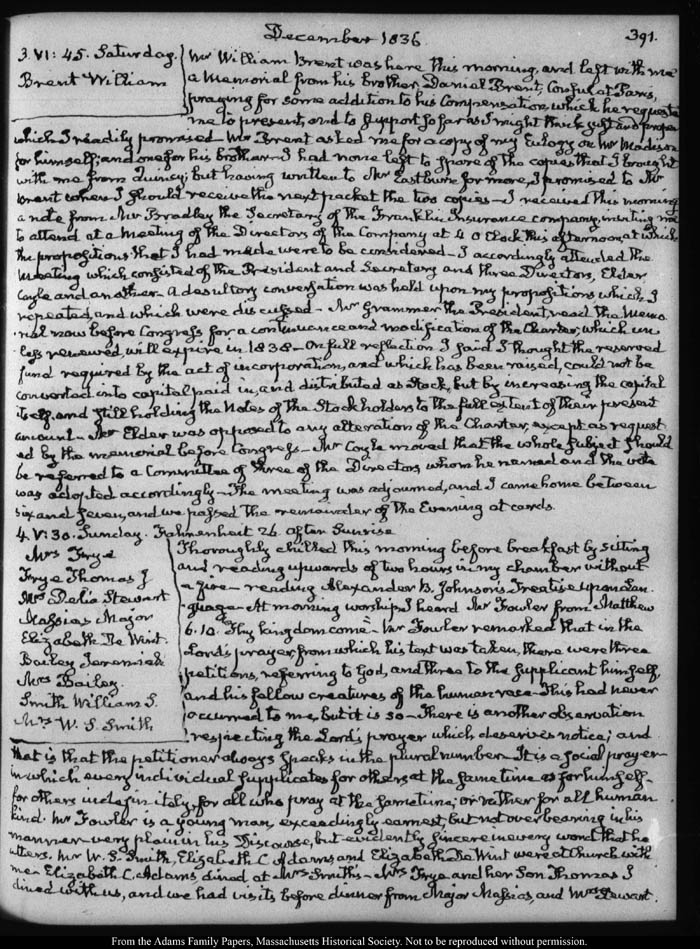 December 1836.
391.
3. VI: 45. Saturday.
Brent William
Mr William Brent was here this morning, and left with me
a Memorial from his brother Daniel Brent, Consul at Paris,
praying for some addition to his Compensation, which he requests
me to present, and to support so far as I might think just and proper
which I readily promised. Mr Brent asked me for a copy of my Eulogy on Mr Madison
for himself, and one for his brother— I had none left to spare of the copies that I brought
with me from Quincy; but having written to Mr Eastburn for more, I promised to Mr
Brent when I should receive the next packet the two copies— I received this morning
a note from Mr Bradley the Secretary of the Franklin Insurance company, inviting me
to attend at a Meeting of the Directors of the Company at 4 O'Clock this afternoon, at which
the propositions that I had made were to be considered— I accordingly attended the
Meeting which consisted of the President and Secretary and three Directors, Elder
Coyle and another— A desultory conversation was held upon my propositions which I
repeated, and which were discussed— Mr Grammer the President, read the Memo-
-rial now before Congress for a continuance and modification of the Charter, which un-
less renewed, will expire in 1838— On full reflection I said I thought the reserved
fund required by the act of incorporation, and which has been raised, could not be
converted into capital paid in, and distributed as Stock, but by increasing the capital
itself, and still holding the Notes of the Stockholders to the full extent of their present
amount— Mr Elder was opposed to any alteration of the Charter, except as request-
ed by the memorial before Congress— Mr Coyle moved that the whole subject should
be referred to a Committee of three of the Directors, whom he named and the vote
was adopted accordingly— The meeting was adjourned, and I came home between
six and seven, and we passed the remainder of the Evening at cards.
4. V: 30. Sunday. Fahrenheit 26. after Sunrise
Mrs Frye
Frye Thomas J
Mrs Delia Stewart
Massias Major
Elizabeth De Wint.
Bailey Jeremiah
Mrs Bailey
Smith William S.
Mrs W. S. Smith
Thoroughly chilled this morning before breakfast by sitting
and reading upwards of two hours in my chamber without
a fire— reading Alexander B. Johnson's Treatise upon Lan-
guage— At morning worship I heard Mr Fowler from Matthew
6. 10. Thy kingdom come— Mr Fowler remarked that in the
Lord's prayer, from which his text was taken, there were three
petitions, referring to God, and three to the supplicant himself,
and his fellow creatures of the human race— This had never
occurred to me, but it is so— There is another observation
respecting the Lord's prayer which deserves notice; and
that is that the petitioner always speaks in the plural number— It is a social prayer—
in which every individual supplicates for others at the same time as for himself—
for others indefinitely, for all who pray at the same time; or rather for all human
kind. Mr Fowler is a young man, exceedingly earnest, but not overbearing in his
manner— very plain in his Discourse, but evidently sincere in every word that he
utters. Mr W. S. Smith, Elizabeth C. Adams and Elizabeth De Wint were at Church with
me— Elizabeth C. Adams dined at Mrs Smith's— Mrs Frye and her Son Thomas J
dined with us, and we had visits before dinner from Major Massias and Mrs Stewart.
From the Adams Family Papers, Massachusetts Historical Society. Not to be reproduced without permission.